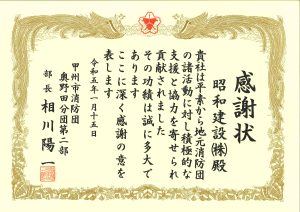 感謝状
昭和建設(株)殿
貴社は平素から地元消防団
の諸活動に対し積極的な
支援と協力を寄せられ
貢献されました
その功績は誠に多大で
あります
ここに深く感謝の意を
表します
令和五年一月十五日
甲州市消防団
奥野田分団第二部
部長 相川陽一